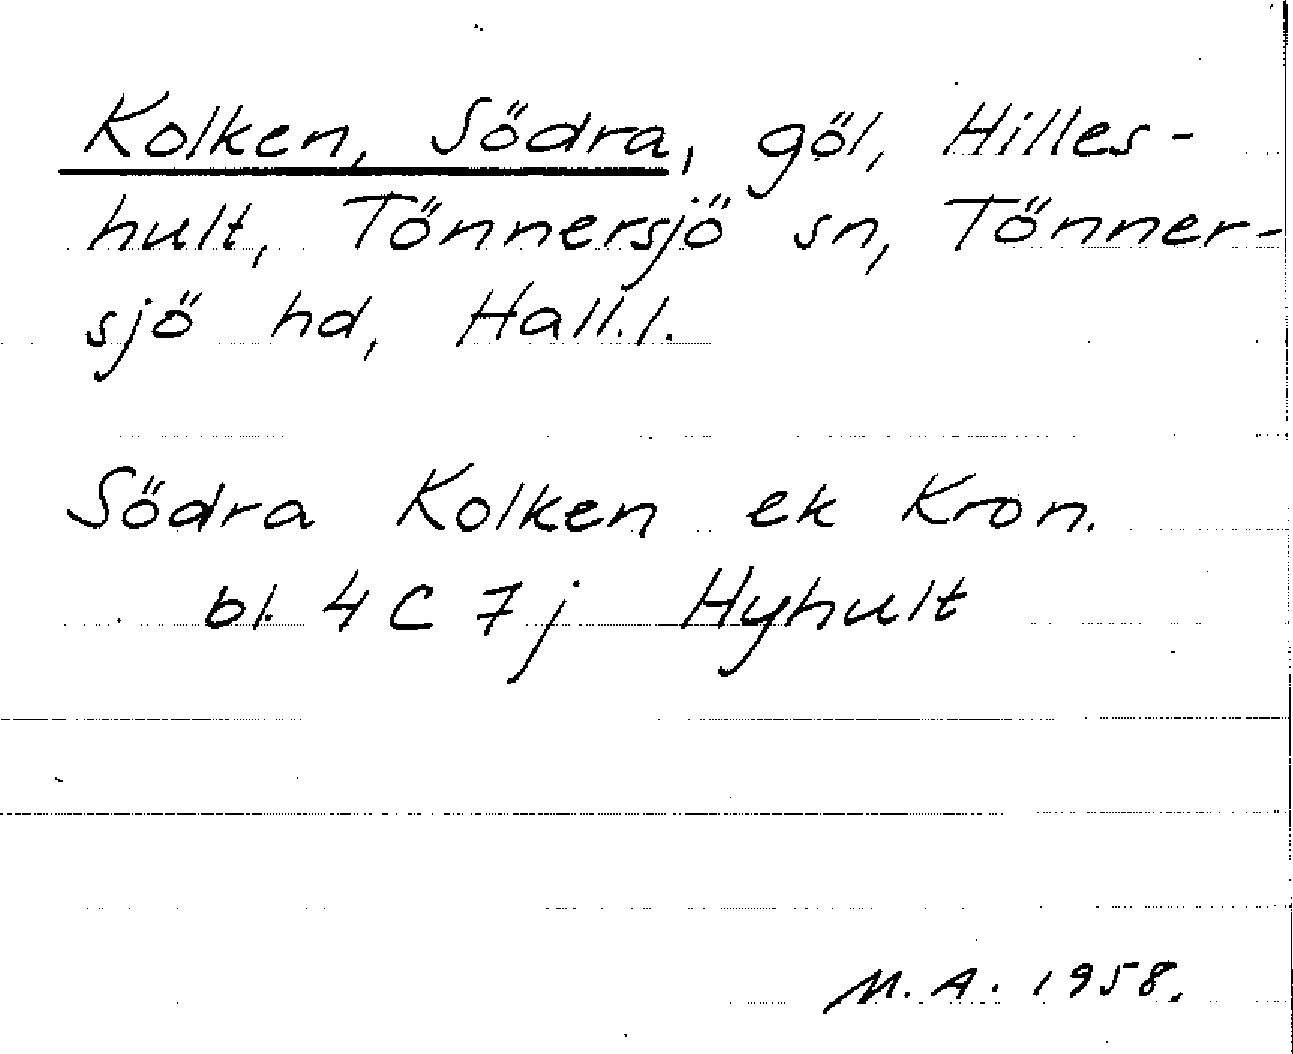 Kolken, Södra, göl, Hilles-
hult, Tönnersjö sn, Tönner-
sjö hd, Hall.l.
Södra Kolken ek Kron.
bl. 4 C 7 j Hyhult
M.A. 1958.